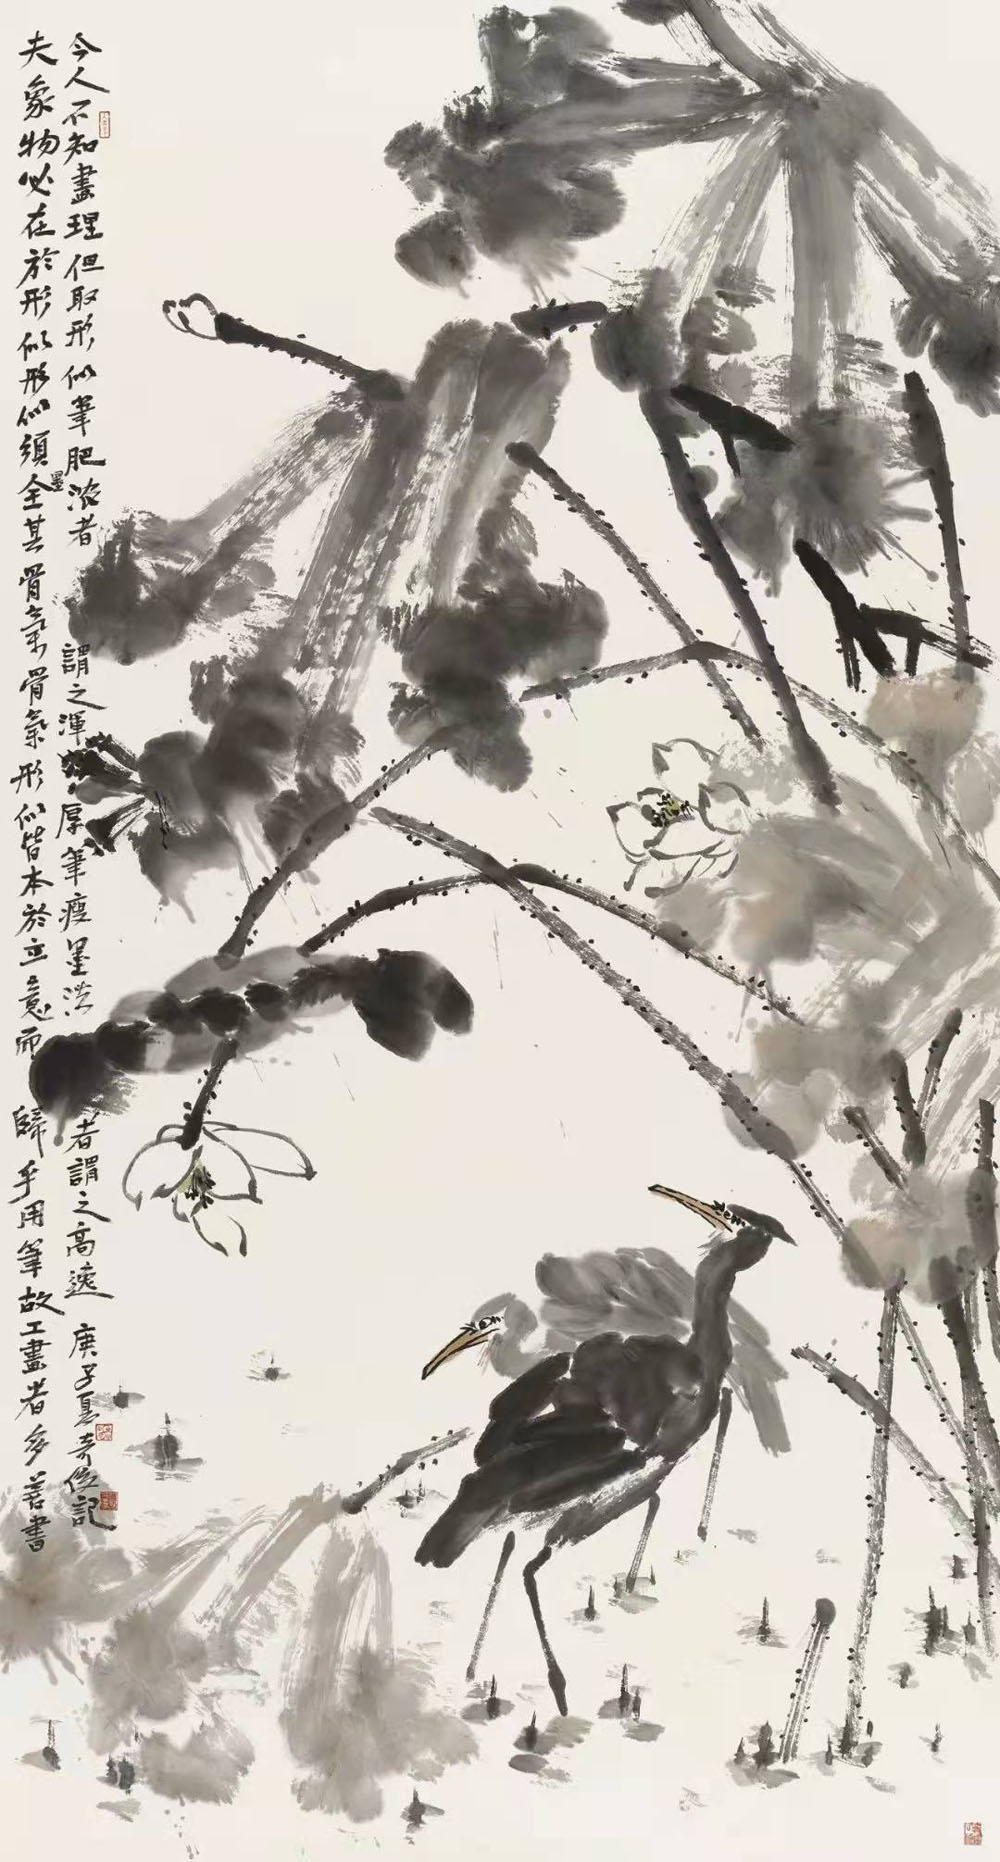 夫象物必在於形似形似須全其骨氣骨氣形似皆本於立意而歸乎用筆故工畫者多善書
今人不知畫理但取形似筆肥墨浓者謂之渾厚筆瘦墨淡者謂之高逸庚子夏奇記